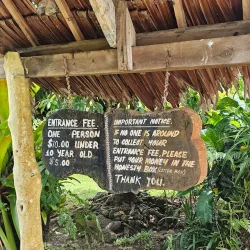 ENTRANCE FEE.
ONE PERSON
$10.00 UNDER
10 YEAR OLD
$5.00
IMPORTANT NOTICE.
IF NO ONE IS AROUND
TO COLLECT YOUR
ENTRANCE FEE, PLEASE
PUT YOUR MONEY IN THE
HONESTY BOX
THANK YOU.